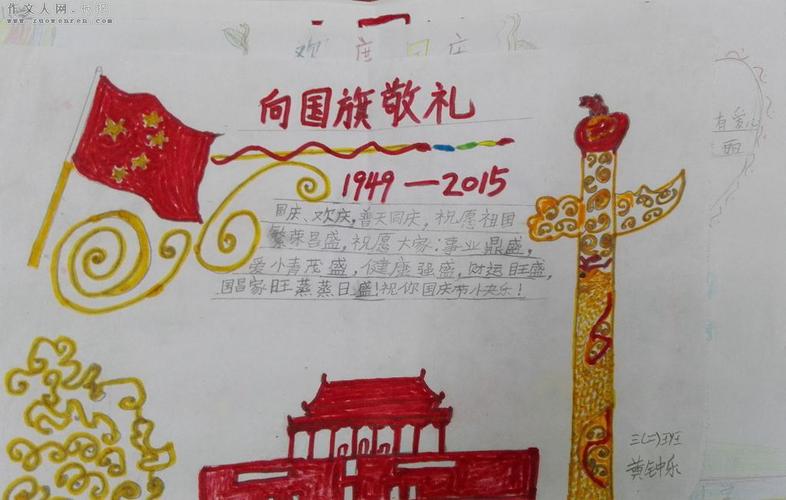 作文人网
www.zuowenren.com
欢度国庆
向国旗敬礼
1949—2015
国庆、欢庆,普天同庆,祝愿祖国
繁荣昌盛,祝愿大家:事业鼎盛,
爱小青茂盛,健康强盛,财运旺盛,
国昌家旺蒸蒸日盛!祝你国庆节小央乐!
有爱心
丽
三(二)班
黄钟乐